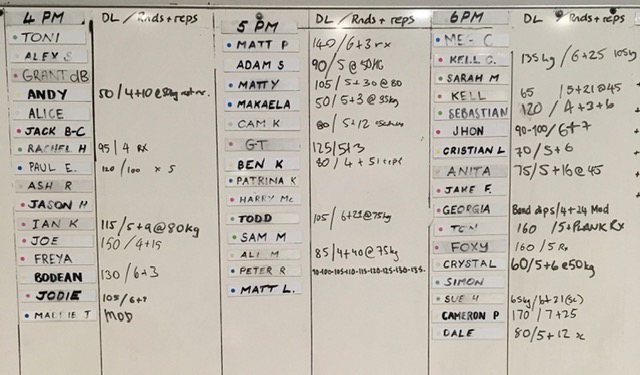 4 PM DL / Rnds + reps
TONI
ALEX S
GRANT dB
ANDY 50 / 4+10 @
ALICE
JACK B-C
RACHEL H 95 / 4 RX
PAUL E. 120 / 100 x 5
ASH R
JASON H
IAN K 115 / 5+9 @ 80kg
JOE 150 / 4+15
FREYA
BODEAN 130 / 6+3
JODIE 105 / 6+?
J MOD
5 PM DL / Rnds + reps
MATT P 140 / 6+3 rx
ADAM S 90 / 5 @ 50KG
MATTY 105 / 5+30 @ 80
MAKAELA 50 / 5+3 @ 35kg
CAM K 80 / 5+12
GT 125/5+3
BEN K 80 / 4 + 51 reps
PATRINA K
HARRY Mc
TODD 105 / 6+21 @ 75kg
SAM M
ALI M 85 / 4+40 @ 75kg
PETER R 90-100-105-110-115-120-125-130-135
MATT L.
6 PM DL / Rnds + reps
MEL C
KELL C. 135kg / 6+25 105kg
SARAH M
KELL 65 / 5+21 @ 45
SEBASTIAN 120 / 4+3+6
JHON 90-100 / 6+7
CRISTIAN L 70 / 5+6
ANITA 75 / 5+16 @ 45
JAKE F.
GEORGIA Band dips / 4+24 Mod
TONI 160 / 5+PLANK Rx
FOXY 160 / 5 Rx
CRYSTAL 60/5+6 @ 50kg
SIMON
SUE H 65kg / 6+21 (sc)
CAMERON P 170 / 7+25
DALE 80 / 5+12